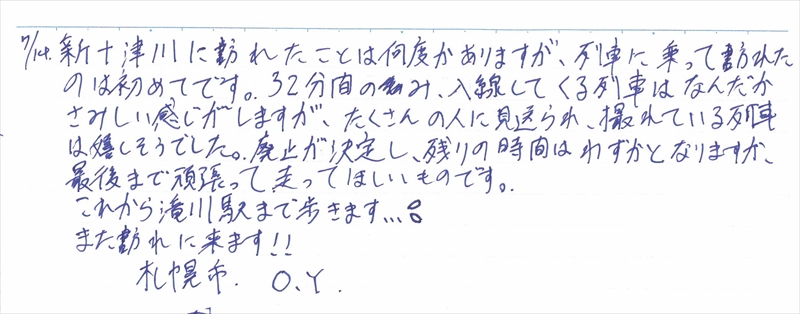 7/14. 新十津川に訪れたことは何度かありますが、列車に乗って訪れた
のは初めてです。32分間のみ、入線してくる列車はなんだか
さみしい感じがしますが、たくさんの人に見送られ、撮れている列車
は嬉しそうでした。廃止が決定し、残りの時間はわずかとなりますが、
最後まで頑張って走ってほしいものです。
これから滝川駅まで歩きます...
また訪れに来ます!!
札幌市. O.Y.